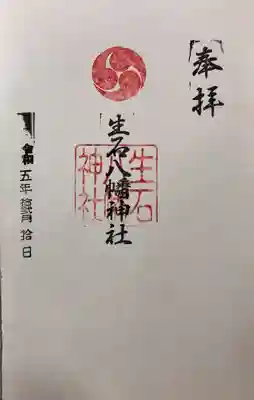 奉拝
生石八幡神社
生石
神社
令和五年拾弐月拾日